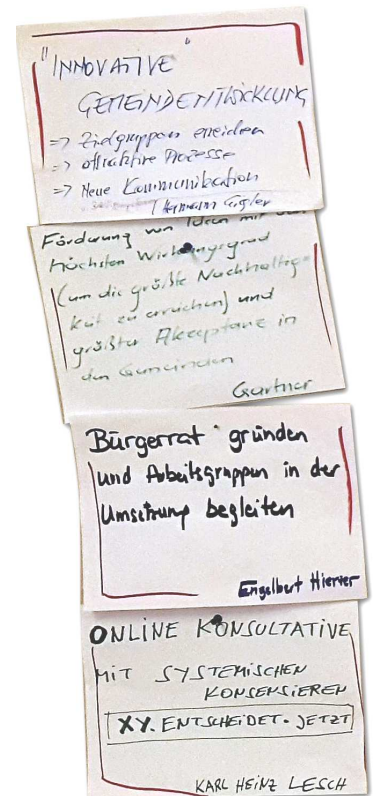 "INNOVATIVE"
GEMEINDENTWICKLUNG
=> Zielgruppen erreichen
=> attraktive Prozesse
=> Neue Kommunikation
Hermann Gigler
Förderung von Ideen mit dem
höchsten Wirkungsgrad
(um die größte Nachhaltig-
keit zu erreichen) und
größter Akzeptanz in
den Gemeinden
Gartner
Bürgerrat gründen
und Arbeitsgruppen in der
Umsetzung begleiten
Engelbert Hierzer
ONLINE KONSULTATIVE
MIT SYSTEMISCHEN
KONSENSIEREN
XY. ENTSCHEIDET. JETZT
KARL HEINZ LESCH